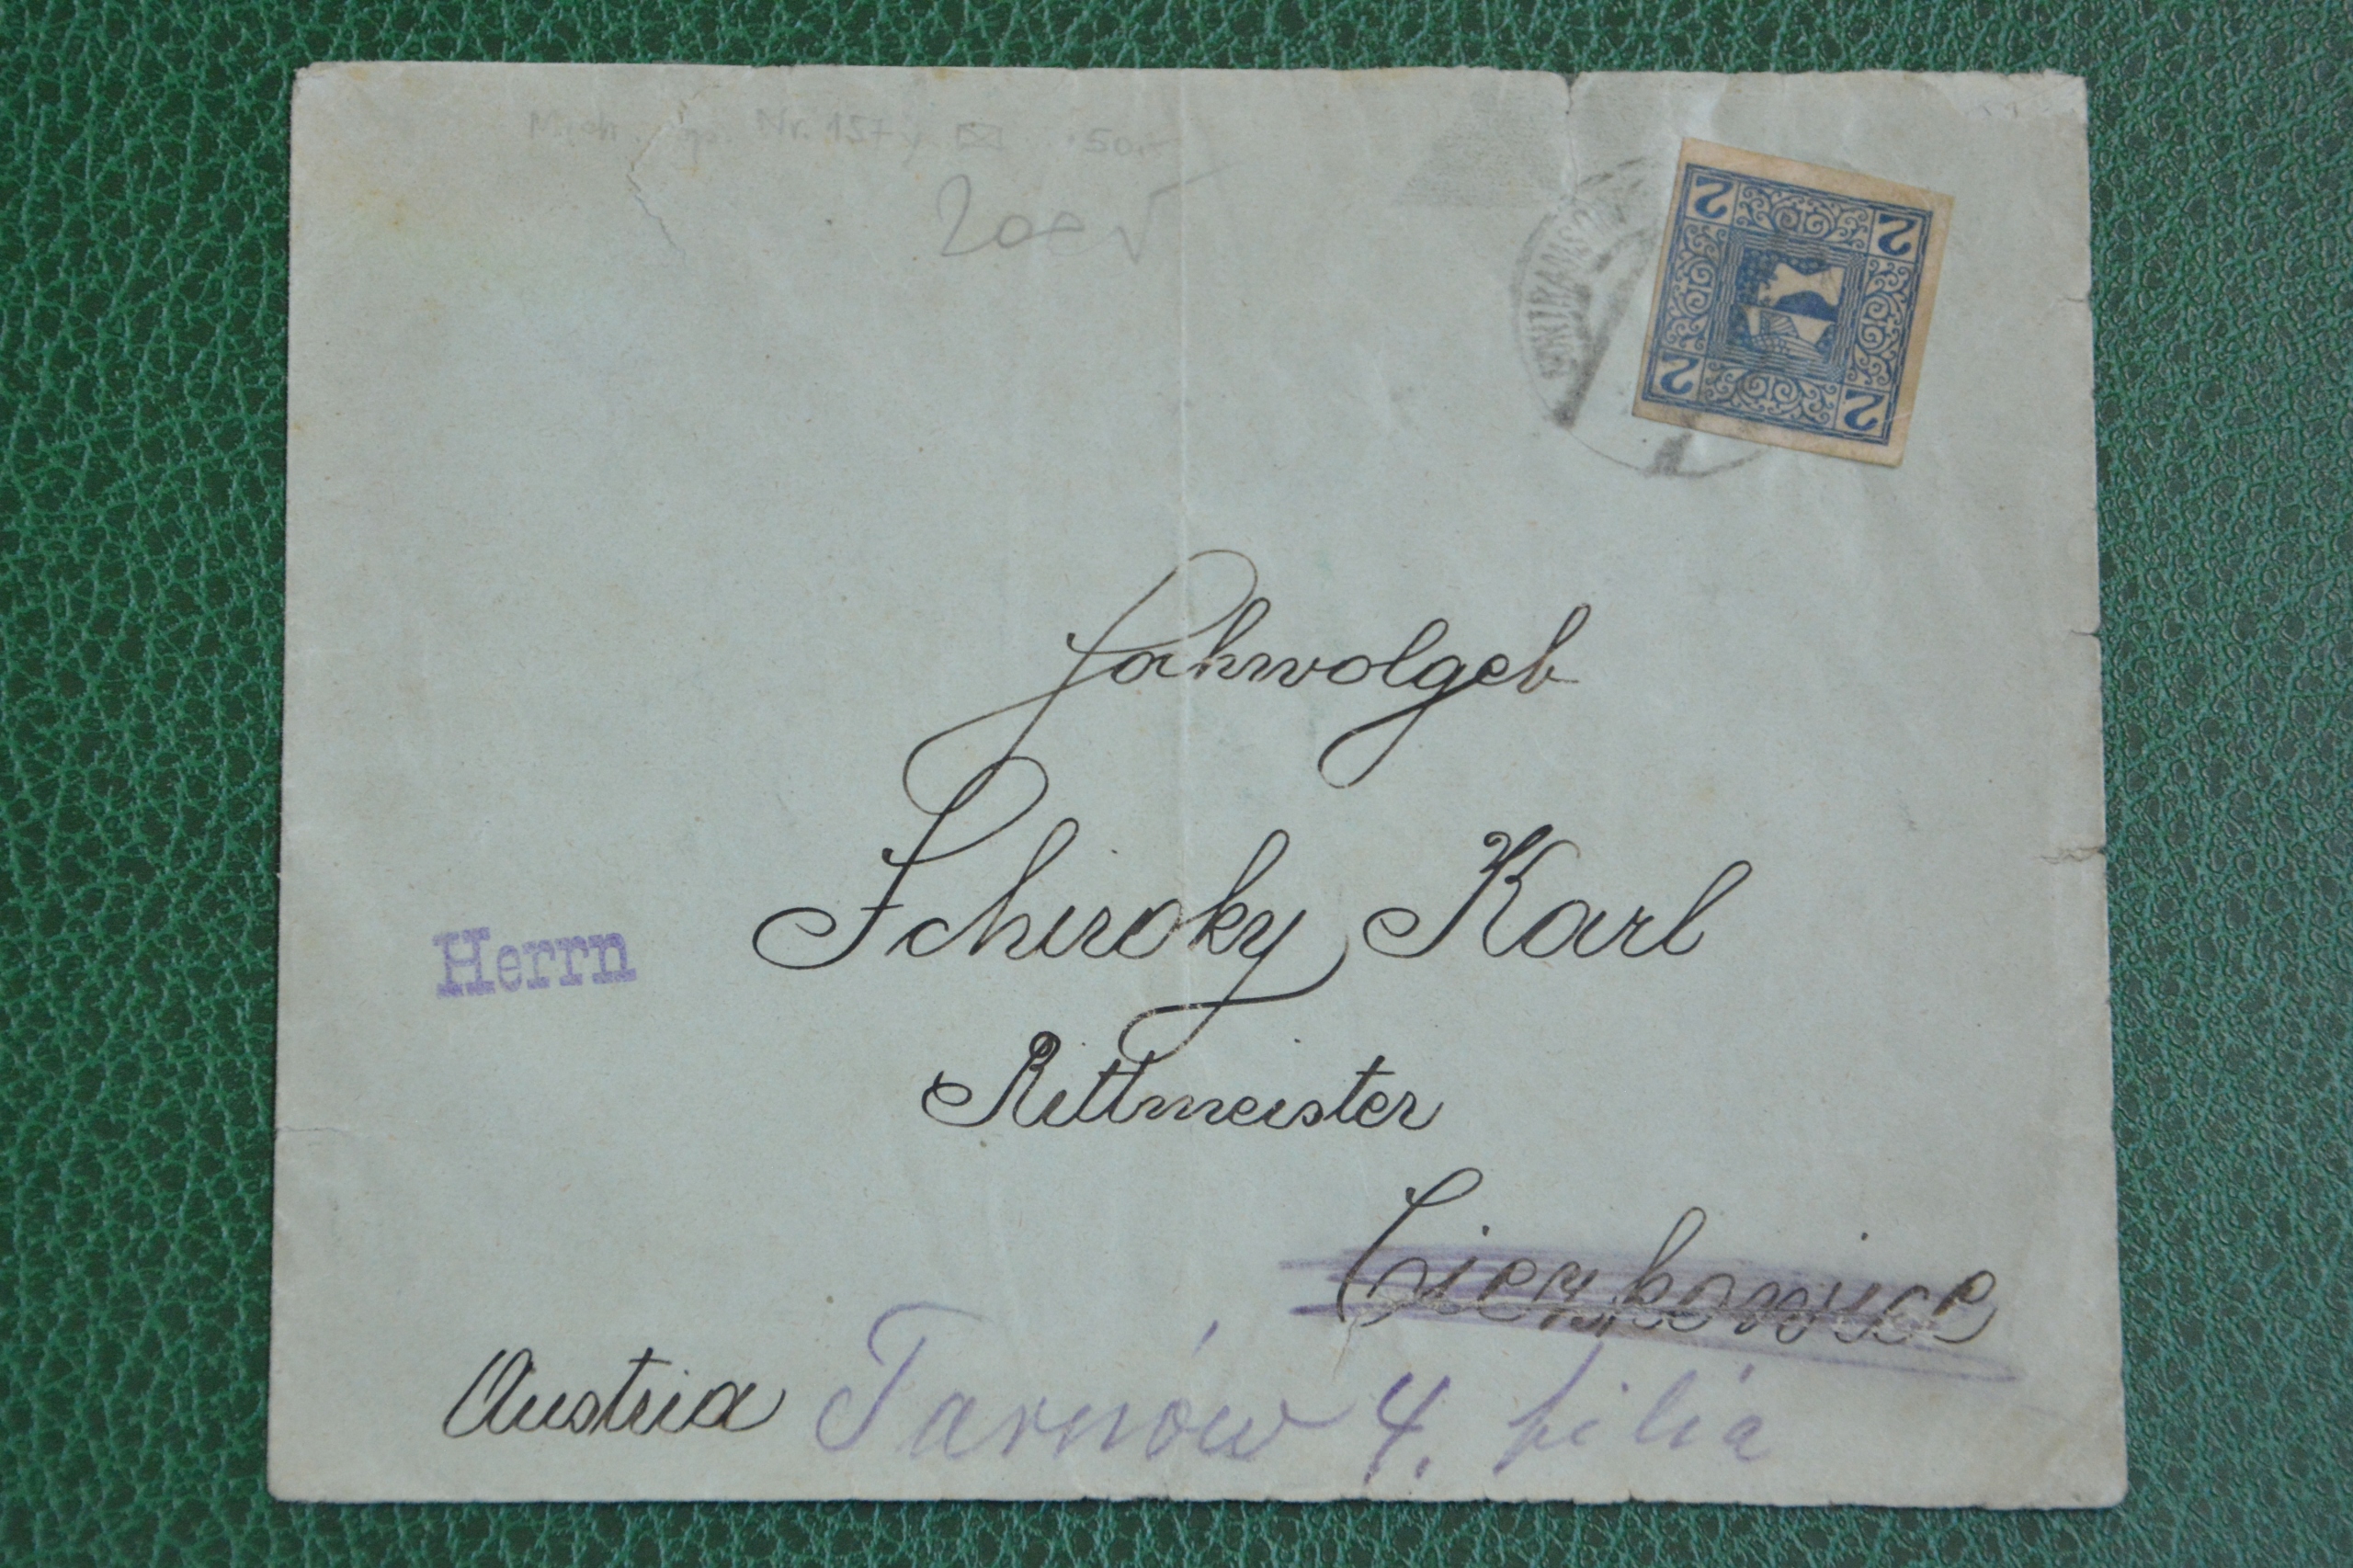 Mich. Nr. 157 y 50.-
2 2
2 2
Hochwolgeb
Schiroky Karl
Herrn
Rittmeister
Cienkowice
Austria Tarnów 4. filia